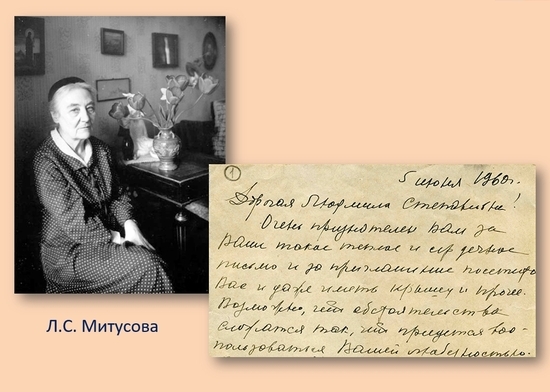 Л.С. Митусова
1
5 июня 1960 г.
Дорогая Людмила Степановна!
Очень признателен Вам за
Ваше такое теплое и сердечное
письмо и за приглашение посетить
Вас и даже иметь крышу и прочее.
Возможно, что обстоятельства
сложатся так, что придется вос-
пользоваться Вашей любезностью.